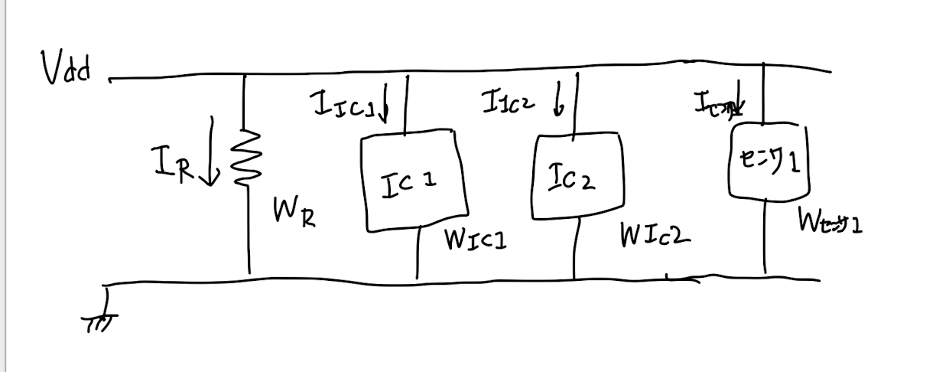 Vdd
I_R
W_R
I_IC1
IC1
W_IC1
I_IC2
IC2
W_IC2
センサ1
W_センサ1